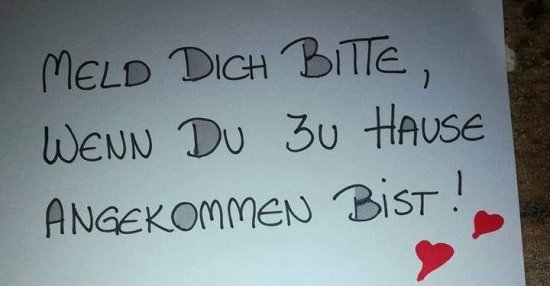 MELD DICH BITTE,
WENN DU ZU HAUSE
ANGEKOMMEN BIST!